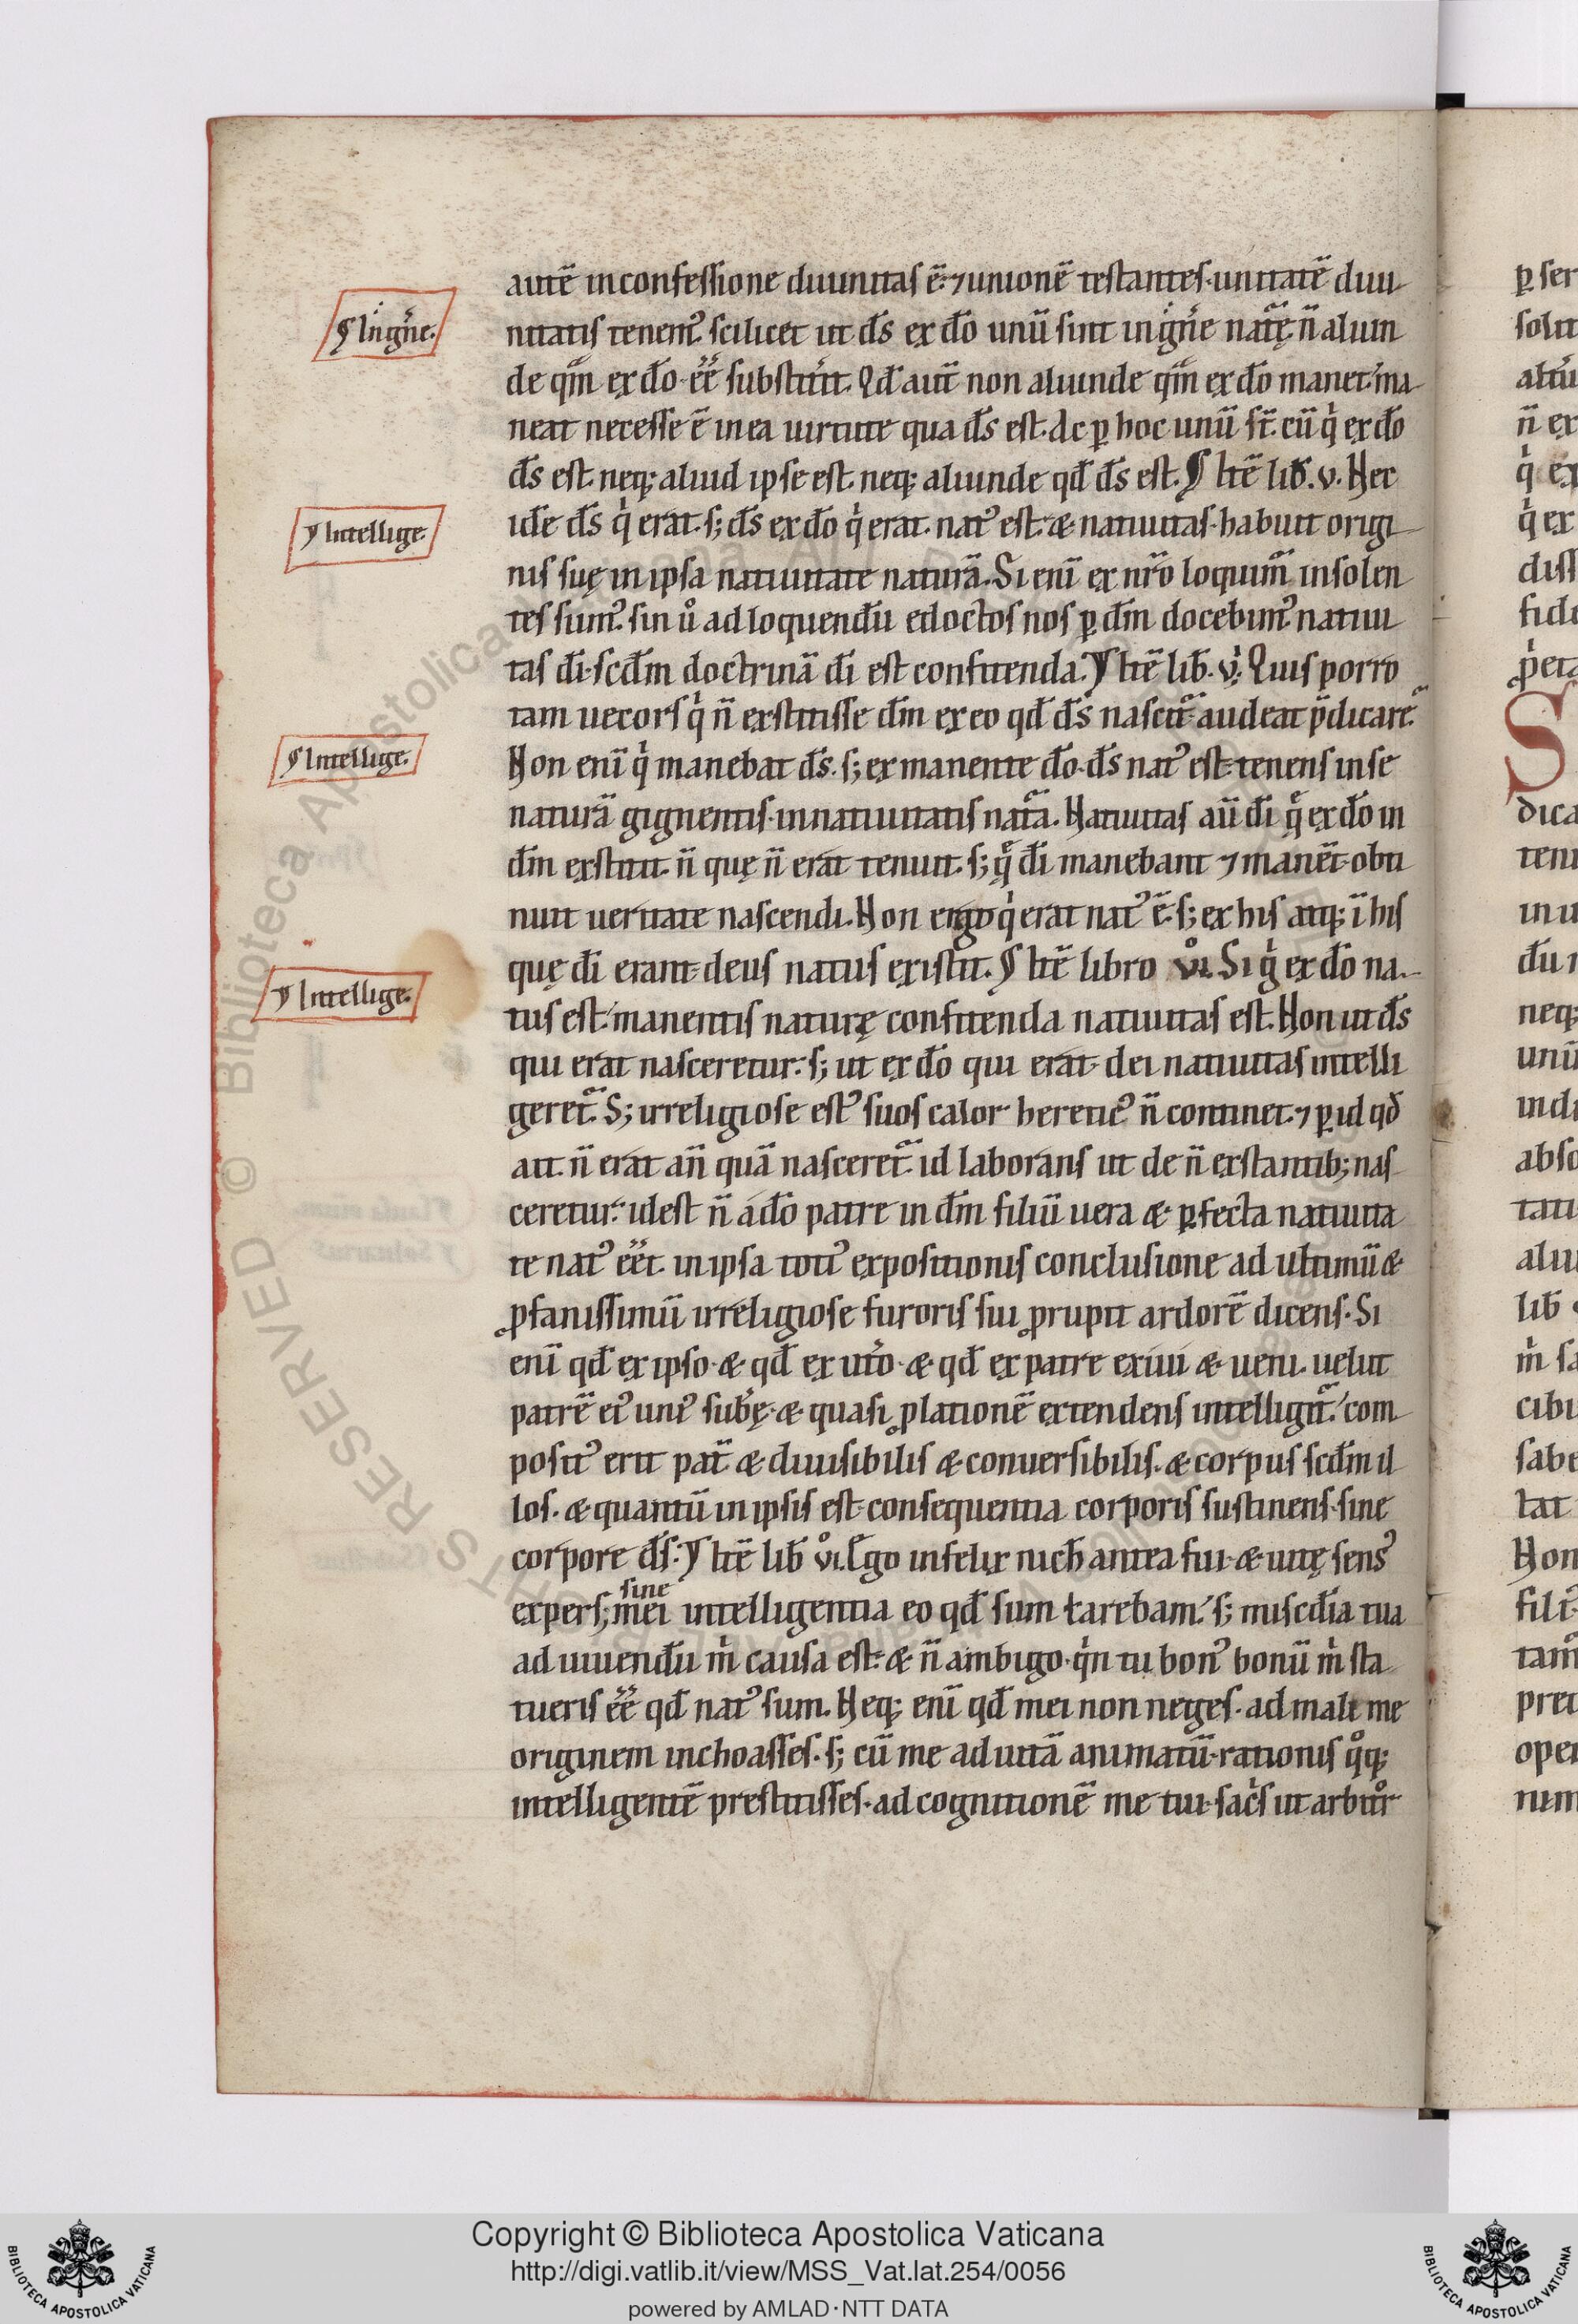 autē in confessione diuinitas ē. ⁊ unionē testantes. unitatē diui
nitatis tenemꝰ. scilicet ut d̄s ex d̄o unū sint in gn̄e nat̄ę n̄ aliun
de qm̄ ex d̄o ēē substit̄it. Qd̄ aut̄ non aliunde qm̄ ex d̄o manet. ma
neat necesse ē in ea uirtute qua d̄s est. Ac ꝑ hoc unū st̄. cū q̇ ex d̄o
d̄s est. neq; aliud ipse est. neq; aliunde qd̄ d̄s est. ¶ Itē lib̄. v. Nec
idē d̄s q̇ erat. s; d̄s ex d̄o q̇ erat. natꝰ est. & natiuitas. habuit origi
nis suę in ipsa natiuitate naturā. Si enī ex nr̄o loquim̄. insolen
tes sumꝰ. sin ů ad loquendū edoctos nos ꝑ dm̄ docebimꝰ. natiui
tas dī. scd̄m doctrinā dī est confitenda. ¶ Itē lib̄. v. Quis porro
tam uecors q̇ n̄ exstitisse dm̄ ex eo qd̄ d̄s nascit̄ audeat p̄dicare.
Non enī q̇ manebat d̄s. s; ex manente d̄o. d̄s natꝰ est. tenens in se
naturā gignentis. in natiuitatis nat̄a. Natiuitas aū dī q̄ ex d̄o in
dm̄ exstitit. n̄ quę n̄ erat tenuit. s; q̄ dī manebant ⁊ manēt. obti
nuit ueritate nascendi. Non ergo q̇ erat natꝰ ē. s; ex his atq; ī his
quę dī erant. deus natus existit. ¶ Itē libro vı̊. Si q̇ ex d̄o na
tus est. manentis naturę confitenda natiuitas est. Non ut d̄s
qui erat nasceretur. s; ut ex d̄o qui erat. dei natiuitas intelli
geret̄. S; irreligiose estꝰ suos calor hereticꝰ n̄ continet. ⁊ ꝑ id qd̄
ait. n̄ erat an̄ quā nasceret̄. id laborans ut de n̄ exstantib; nas
ceretur. idest n̄ a d̄o patre in dm̄ filiū uera & ꝑfecta natiuita
te natꝰ ēēt. in ipsa totiꝰ expositionis conclusione ad ultimū &
ꝓfanissimū irreligiose furoris sui ꝓrupit ardorē dicens. Si
enī qd̄ ex ipso. & qd̄ ex ut̄o. & qd̄ ex patre exiui & ueni. uelut
patrē eiꝰ uniꝰ sub̄ę. & quasi ꝓlationē extendens intelligit̄. com
positꝰ erit pat̄ & diuisibilis & conuersibilis. & corpus scd̄m il
los. & quantū in ipsis est. consequentia corporis sustinens. sine
corpore d̄s. ¶ Itē lib̄ vı̊. Ego infelix nich̄ antea fui. & uitę sensꝰ
sine
expers; mei intelligentia eo qd̄ sum carebam. s; miscd̄ia tua
ad uiuendū m̍ causa est. & n̄ ambigo. q̇n tu bonꝰ bonū m̍ sta
tueris ēē qd̄ natꝰ sum. Neq; enī qd̄ mei non neges. ad mali me
originem inchoasses. s; cū me ad uitā animatū. rationis q̊q;
intelligentē prestitisses. ad cognitionē me tui. sac̄s ut arbitr̊
¶ In gn̄e.
¶ Intellige.
¶ Intellige.
¶ Intellige.
Copyright © Biblioteca Apostolica Vaticana
http://digi.vatlib.it/view/MSS_Vat.lat.254/0056
powered by AMLAD·NTT DATA
BIBLIOTECA APOSTOLICA VATICANA
BIBLIOTECA APOSTOLICA VATICANA